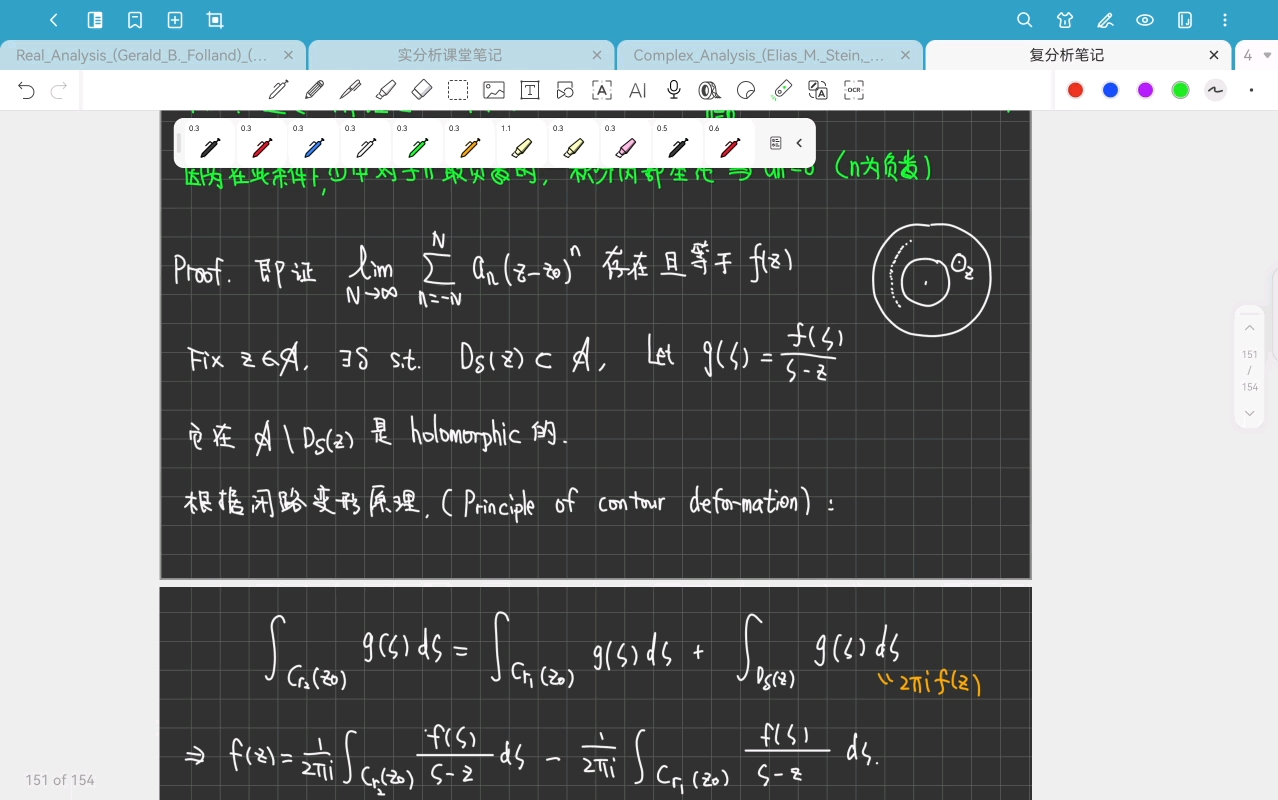 Real_Analysis_(Gerald_B._Folland)_(...
实分析课堂笔记
Complex_Analysis_(Elias_M._Stein,_...
复分析笔记
4
T A AI A OCR
0.3 0.3 0.3 0.3 0.3 0.3 1.1 0.3 0.3 0.5 0.6
(n为负数)
Proof. 即证 lim_{N→∞} ∑_{n=-N}^{N} a_n(z-z_0)^n 存在且等于 f(z)
z
Fix z∈A, ∃δ s.t. D_δ(z)⊂A, Let g(ζ)=f(ζ)/(ζ-z)
它在 A\D_δ(z) 是 holomorphic 的.
根据闭路变形原理, (Principle of contour deformation):
∫_{C_{r_2}(z_0)} g(ζ)dζ = ∫_{C_{r_1}(z_0)} g(ζ)dζ + ∫_{D_δ(z)} g(ζ)dζ
2πi f(z)
⇒ f(z)= 1/2πi ∫_{C_{r_2}(z_0)} f(ζ)/(ζ-z) dζ - 1/2πi ∫_{C_{r_1}(z_0)} f(ζ)/(ζ-z) dζ.
151
/
154
151 of 154